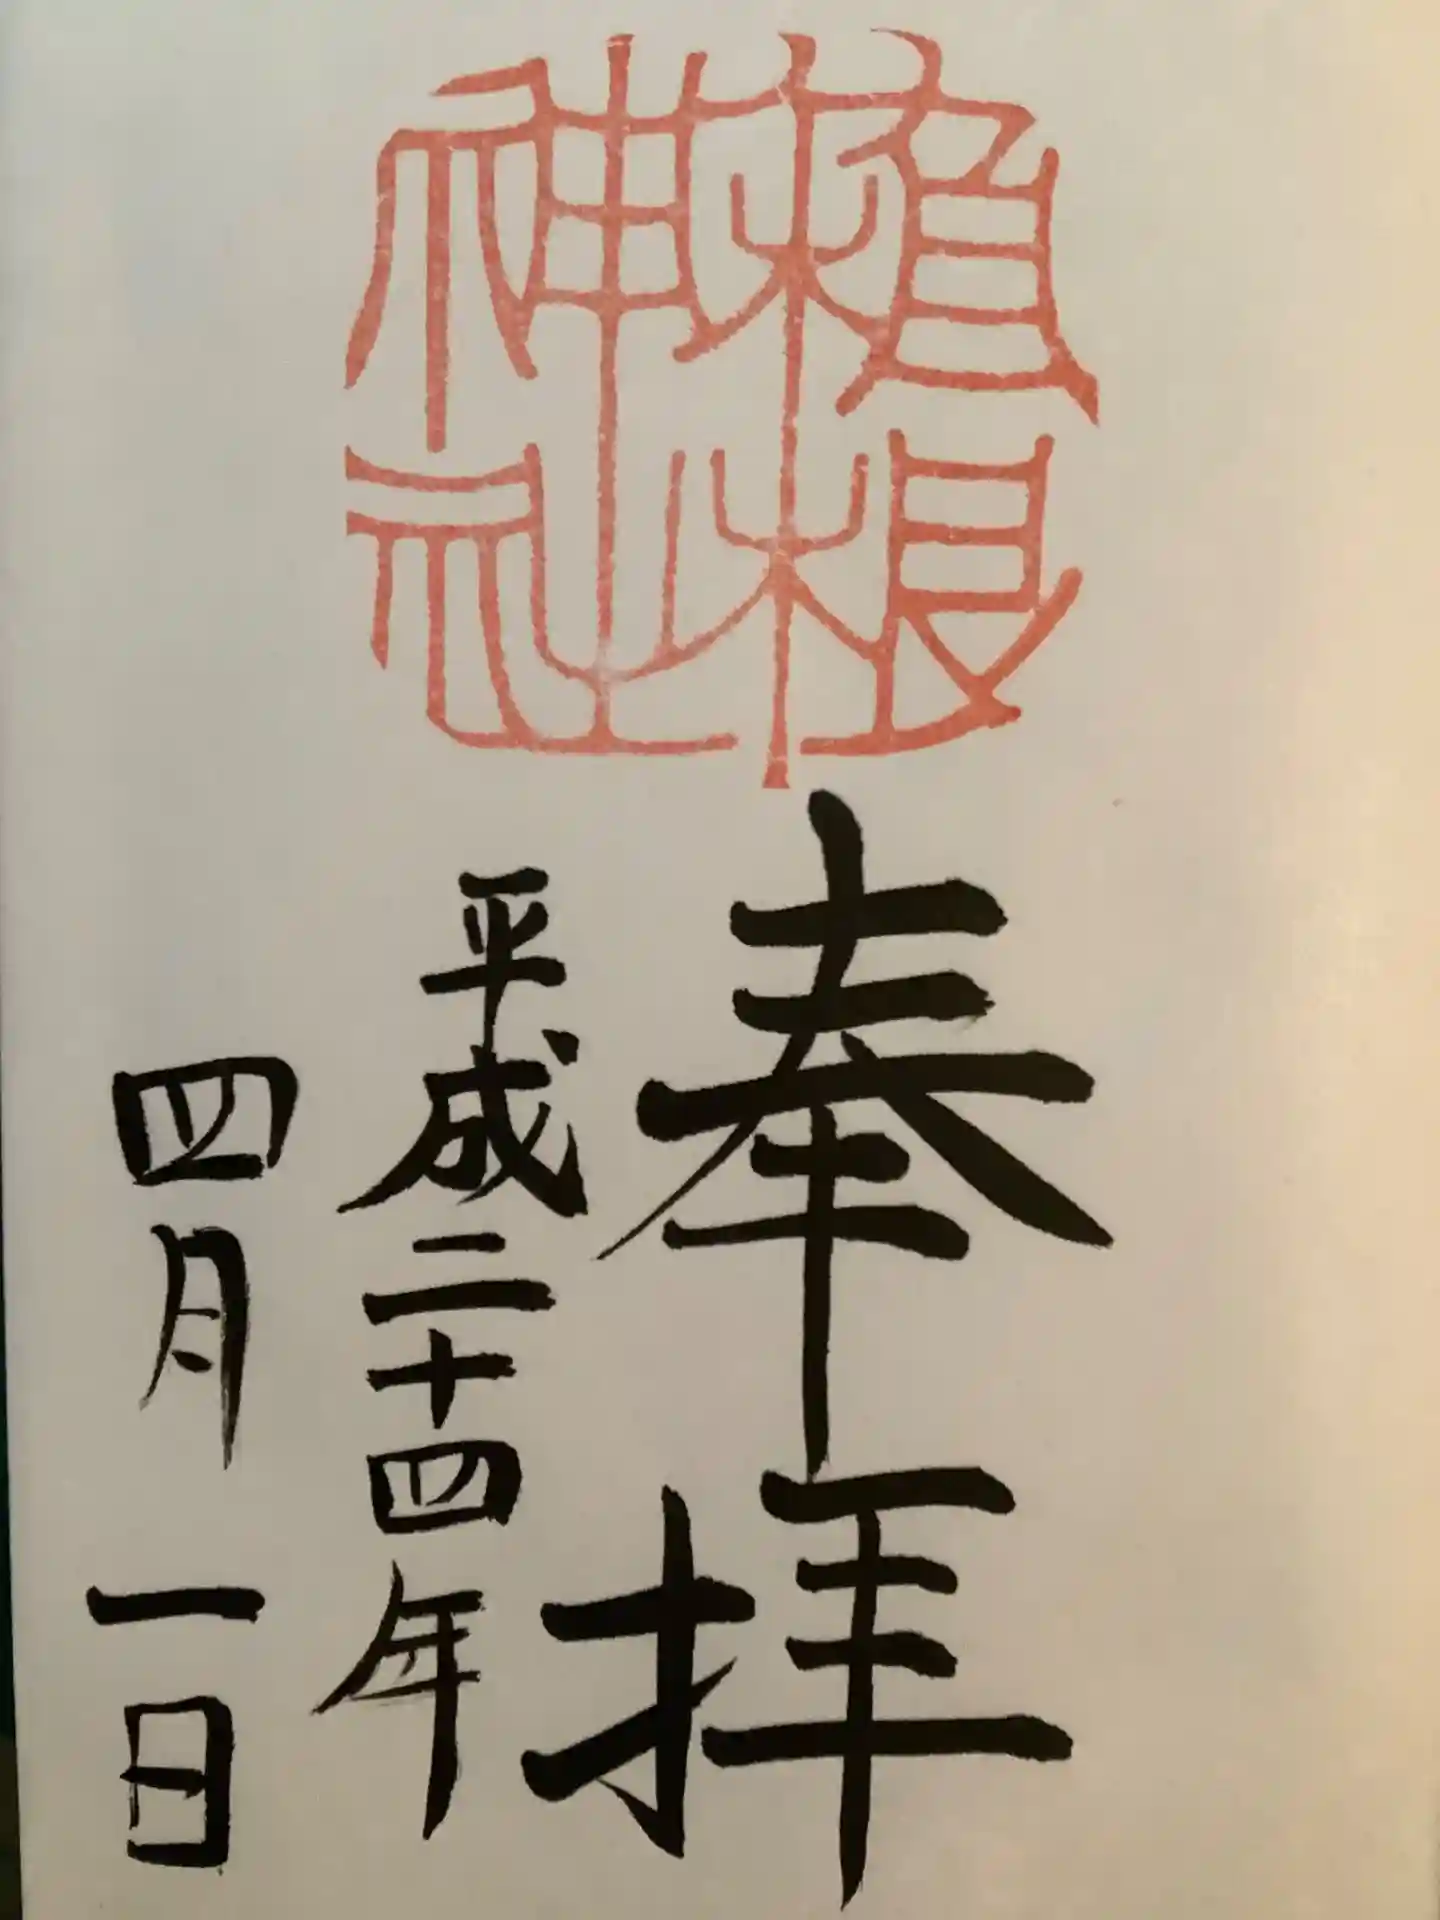 神社
奉拝
平成二十四年
四月一日